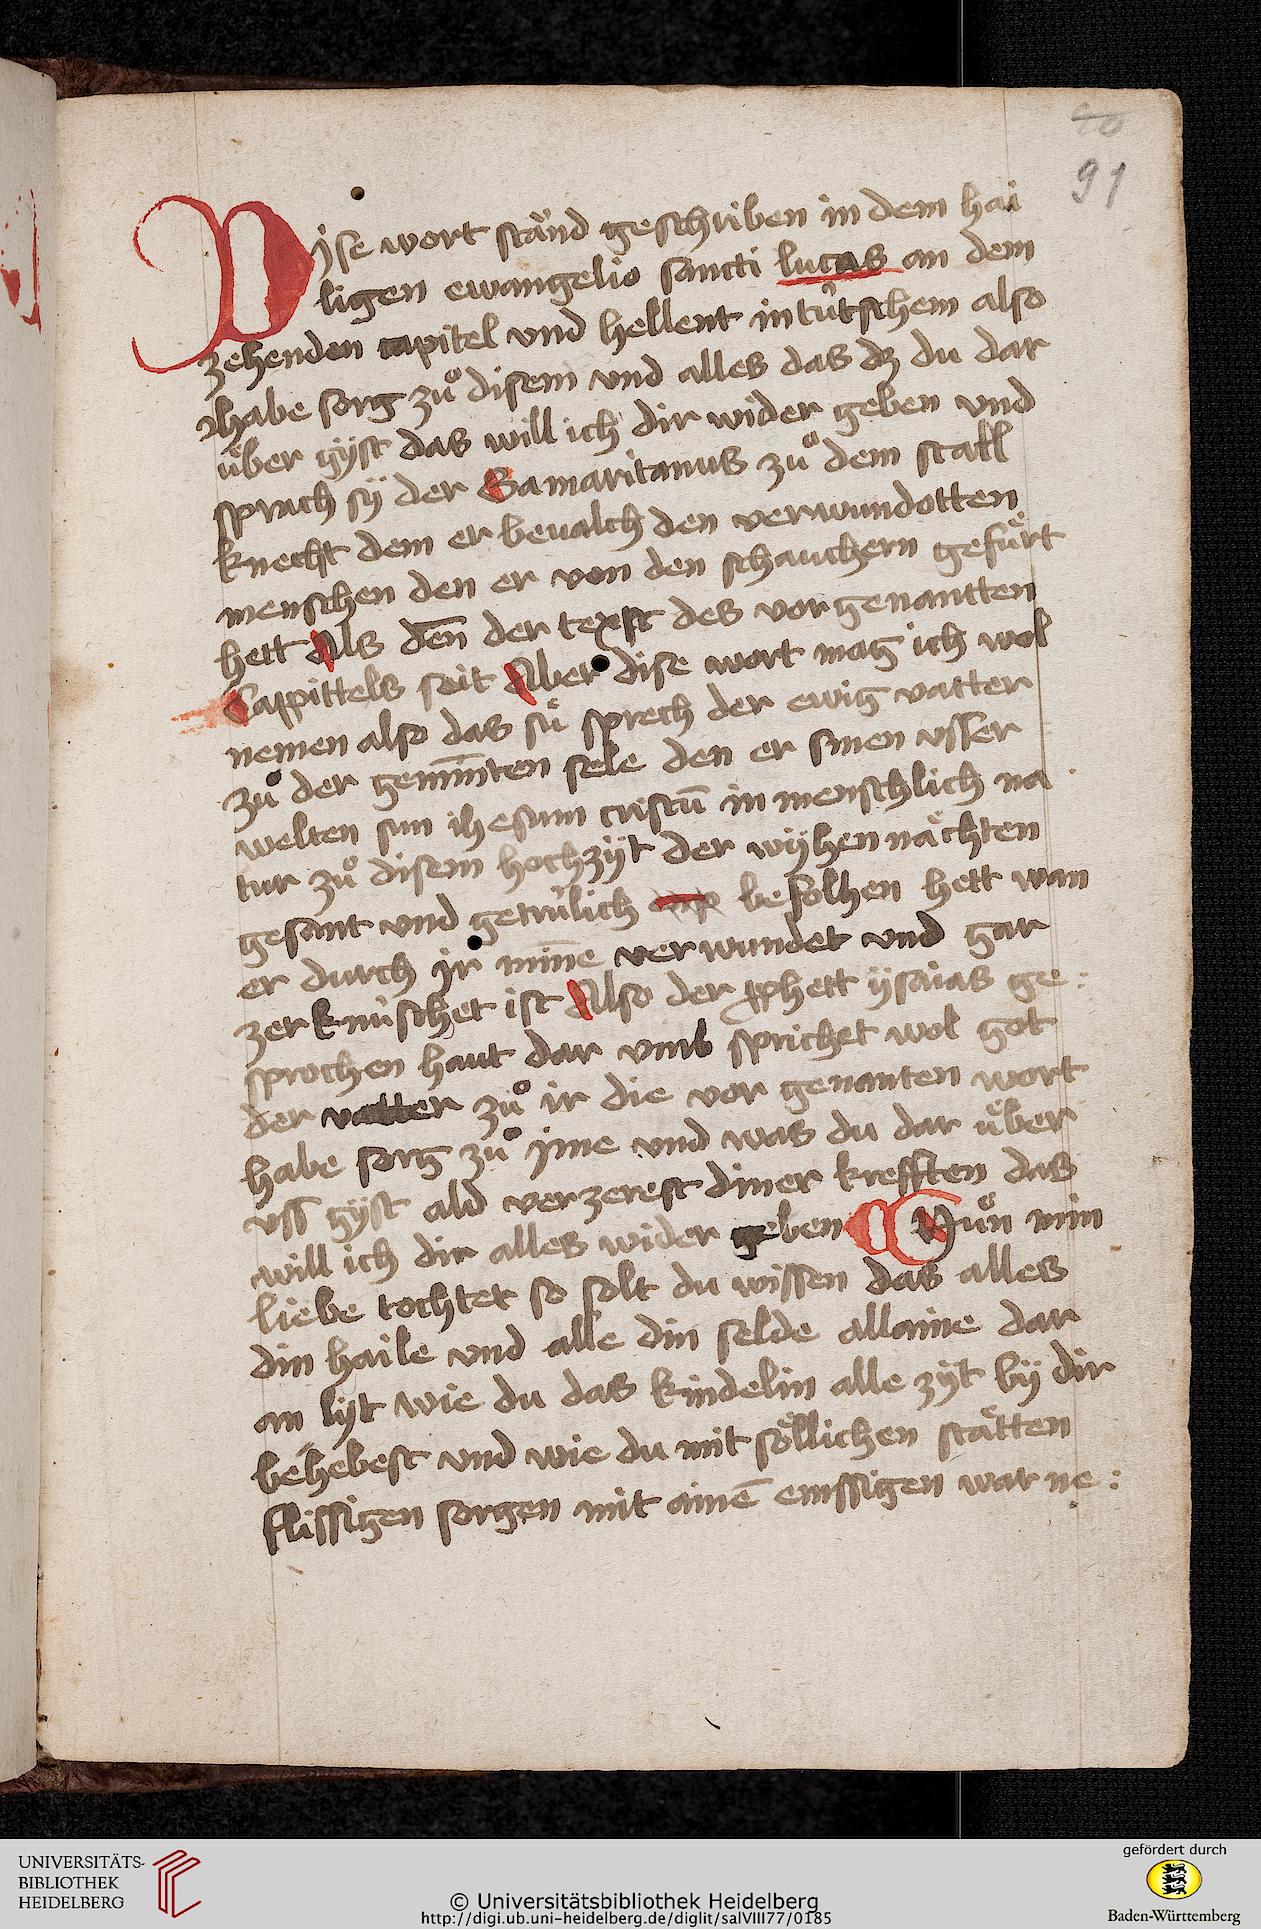 90
91
Dise wort ständ geschriben in dem hai
ligen ewangelio sancti lucas an dem
zehenden capitel vnd hellent in tu̍tschem also
habe sorg zů disem vnd alles das dz du dar
u̍ber gÿst das will ich dir wider geben vnd
sprach sÿ der Samaritanus zů dem stall
knecht dem er beualch den verwundotten
menschen den er von den schauchern gefu̍rt
hett Als den̄ der texst des vorgenantten
Cappittels seit Aber dise wort mag ich wol
nemen also das su̍ sprech der ewig vatter
zů der gemin̄ten sele den er sinen vsser
welten sun ihesum cristū in menschlich na
tur zů disem hochzÿt der wÿhen nächten
gesant vnd getru̍lich befolhen hett wan
er durch jr min̄e verwundet vnd gar
zerknu̍schet ist Also der pphett ÿsaias ge:
sprochen haut dar vmb sprichet wol got
der vatter zů ir die vor genanten wort
habe sorg zů jme vnd was du dar u̍ber
vss gÿst ald verzerest diner krefften das
will ich dir alles wider geben Nůn min
liebe tochter so solt du wissen das alles
din haile vnd alle din selde allaine dar
an lÿt wie du das kindelin alle zÿt bÿ dir
behebest vnd wie du mit söllichen stätten
flissigen sorgen mit ainē emssigen war ne:
UNIVERSITÄTS-
BIBLIOTHEK
HEIDELBERG
© Universitätsbibliothek Heidelberg
http://digi.ub.uni-heidelberg.de/diglit/salVIII77/0185
gefördert durch
Baden-Württemberg